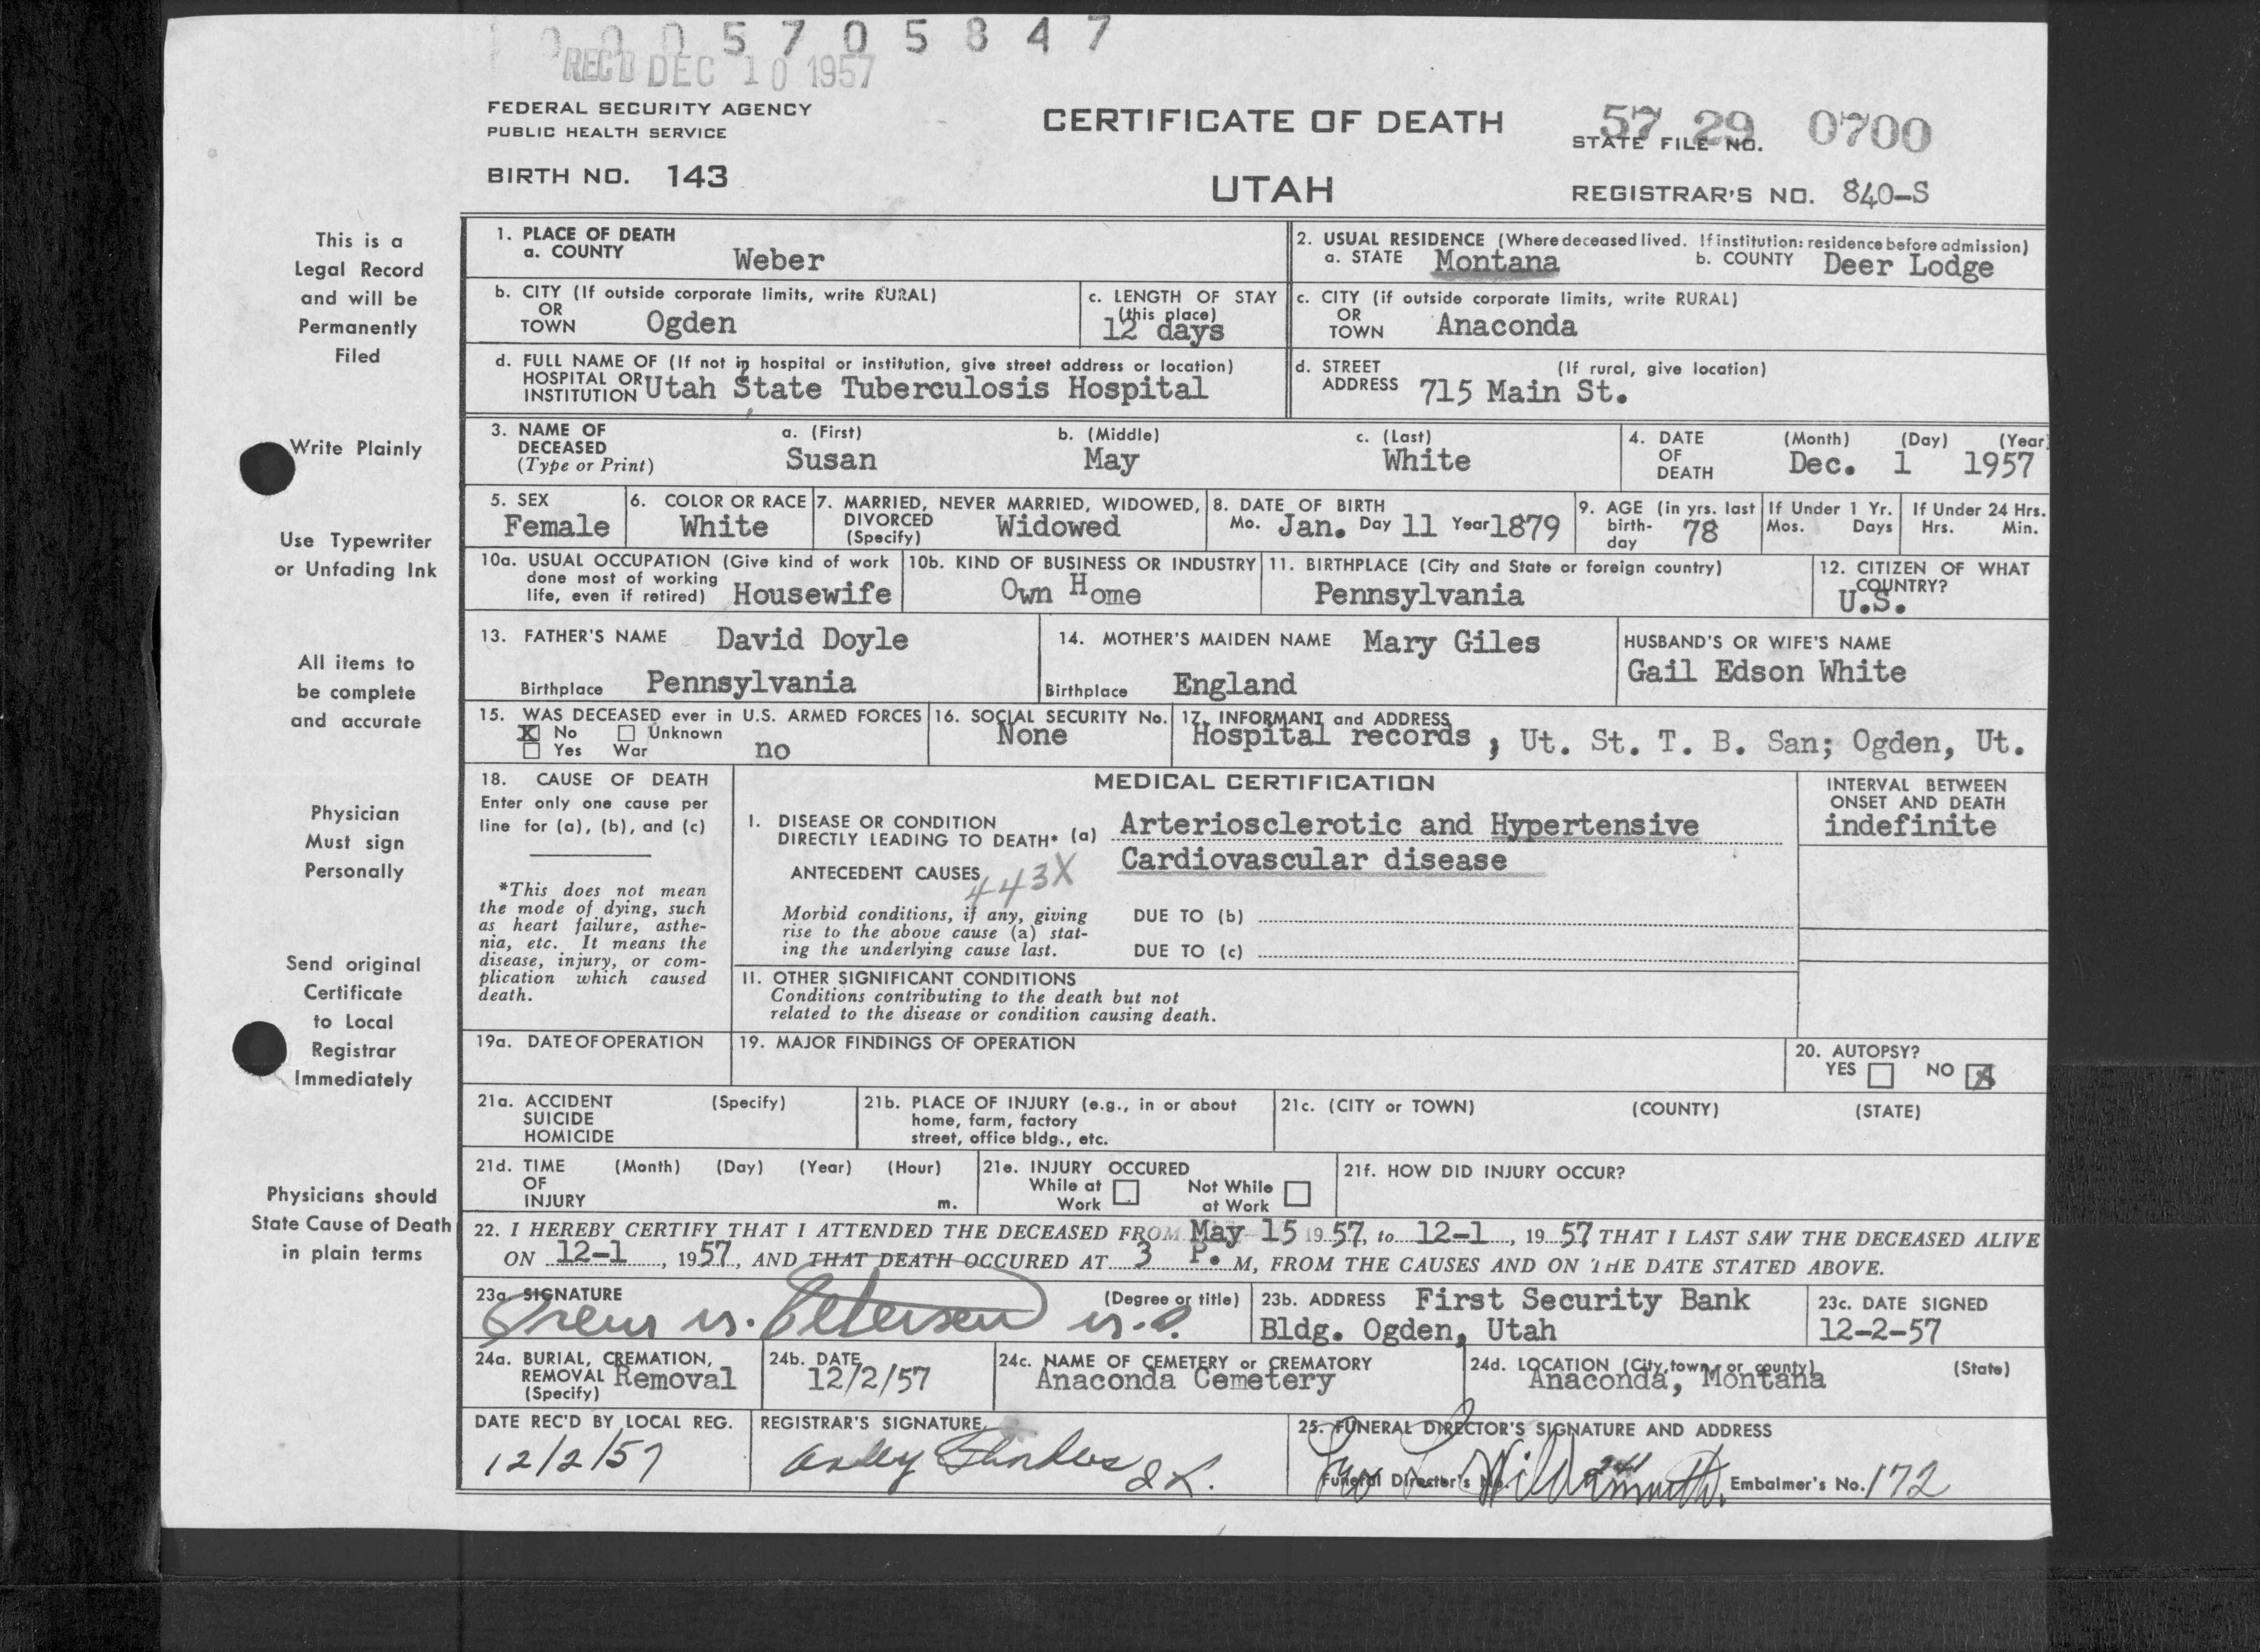 0 0 0 5 7 0 5 8 4 7
REC'D DEC 10 1957
FEDERAL SECURITY AGENCY
PUBLIC HEALTH SERVICE
BIRTH NO. 143
CERTIFICATE OF DEATH
UTAH
57 29 0700
STATE FILE NO.
REGISTRAR'S NO. 840-S
This is a
Legal Record
and will be
Permanently
Filed
Write Plainly
Use Typewriter
or Unfading Ink
All items to
be complete
and accurate
Physician
Must sign
Personally
Send original
Certificate
to Local
Registrar
Immediately
Physicians should
State Cause of Death
in plain terms
1. PLACE OF DEATH
a. COUNTY Weber
2. USUAL RESIDENCE (Where deceased lived. If institution: residence before admission)
a. STATE Montana b. COUNTY Deer Lodge
b. CITY (If outside corporate limits, write RURAL)
OR
TOWN Ogden
c. LENGTH OF STAY
(this place)
12 days
c. CITY (if outside corporate limits, write RURAL)
OR
TOWN Anaconda
d. FULL NAME OF (If not in hospital or institution, give street address or location)
HOSPITAL OR
INSTITUTION Utah State Tuberculosis Hospital
d. STREET (If rural, give location)
ADDRESS 715 Main St.
3. NAME OF
DECEASED
(Type or Print)
a. (First) b. (Middle) c. (Last)
Susan May White
4. DATE
OF
DEATH
(Month) (Day) (Year)
Dec. 1 1957
5. SEX
Female
6. COLOR OR RACE
White
7. MARRIED, NEVER MARRIED, WIDOWED,
DIVORCED
(Specify) Widowed
8. DATE OF BIRTH
Mo. Jan. Day 11 Year 1879
9. AGE (in yrs. last
birth-
day 78
If Under 1 Yr.
Mos. Days
If Under 24 Hrs.
Hrs. Min.
10a. USUAL OCCUPATION (Give kind of work
done most of working
life, even if retired) Housewife
10b. KIND OF BUSINESS OR INDUSTRY
Own Home
11. BIRTHPLACE (City and State or foreign country)
Pennsylvania
12. CITIZEN OF WHAT
COUNTRY?
U.S.
13. FATHER'S NAME David Doyle
Birthplace Pennsylvania
14. MOTHER'S MAIDEN NAME Mary Giles
Birthplace England
HUSBAND'S OR WIFE'S NAME
Gail Edson White
15. WAS DECEASED ever in U.S. ARMED FORCES
X No Unknown
Yes War no
16. SOCIAL SECURITY No.
None
17. INFORMANT and ADDRESS
Hospital records , Ut. St. T. B. San; Ogden, Ut.
18. CAUSE OF DEATH
Enter only one cause per
line for (a), (b), and (c)
*This does not mean
the mode of dying, such
as heart failure, asthe-
nia, etc. It means the
disease, injury, or com-
plication which caused
death.
MEDICAL CERTIFICATION
I. DISEASE OR CONDITION
DIRECTLY LEADING TO DEATH* (a) Arteriosclerotic and Hypertensive
Cardiovascular disease
ANTECEDENT CAUSES
443X
Morbid conditions, if any, giving
rise to the above cause (a) stat-
ing the underlying cause last.
DUE TO (b)
DUE TO (c)
II. OTHER SIGNIFICANT CONDITIONS
Conditions contributing to the death but not
related to the disease or condition causing death.
INTERVAL BETWEEN
ONSET AND DEATH
indefinite
19a. DATE OF OPERATION
19. MAJOR FINDINGS OF OPERATION
20. AUTOPSY?
YES NO X
21a. ACCIDENT (Specify)
SUICIDE
HOMICIDE
21b. PLACE OF INJURY (e.g., in or about
home, farm, factory
street, office bldg., etc.
21c. (CITY or TOWN) (COUNTY) (STATE)
21d. TIME (Month) (Day) (Year) (Hour)
OF
INJURY m.
21e. INJURY OCCURED
While at Not While
Work at Work
21f. HOW DID INJURY OCCUR?
22. I HEREBY CERTIFY THAT I ATTENDED THE DECEASED FROM May 15 1957, to 12-1, 1957 THAT I LAST SAW THE DECEASED ALIVE
ON 12-1, 1957, AND THAT DEATH OCCURED AT 3 P. M, FROM THE CAUSES AND ON THE DATE STATED ABOVE.
23a. SIGNATURE (Degree or title)
Petersen M.D.
23b. ADDRESS First Security Bank
Bldg. Ogden, Utah
23c. DATE SIGNED
12-2-57
24a. BURIAL, CREMATION,
REMOVAL Removal
(Specify)
24b. DATE
12/2/57
24c. NAME OF CEMETERY or CREMATORY
Anaconda Cemetery
24d. LOCATION (City, town, or county) (State)
Anaconda, Montana
DATE REC'D BY LOCAL REG.
12/2/57
REGISTRAR'S SIGNATURE
25. FUNERAL DIRECTOR'S SIGNATURE AND ADDRESS
Funeral Director's No. 241 Embalmer's No. 172